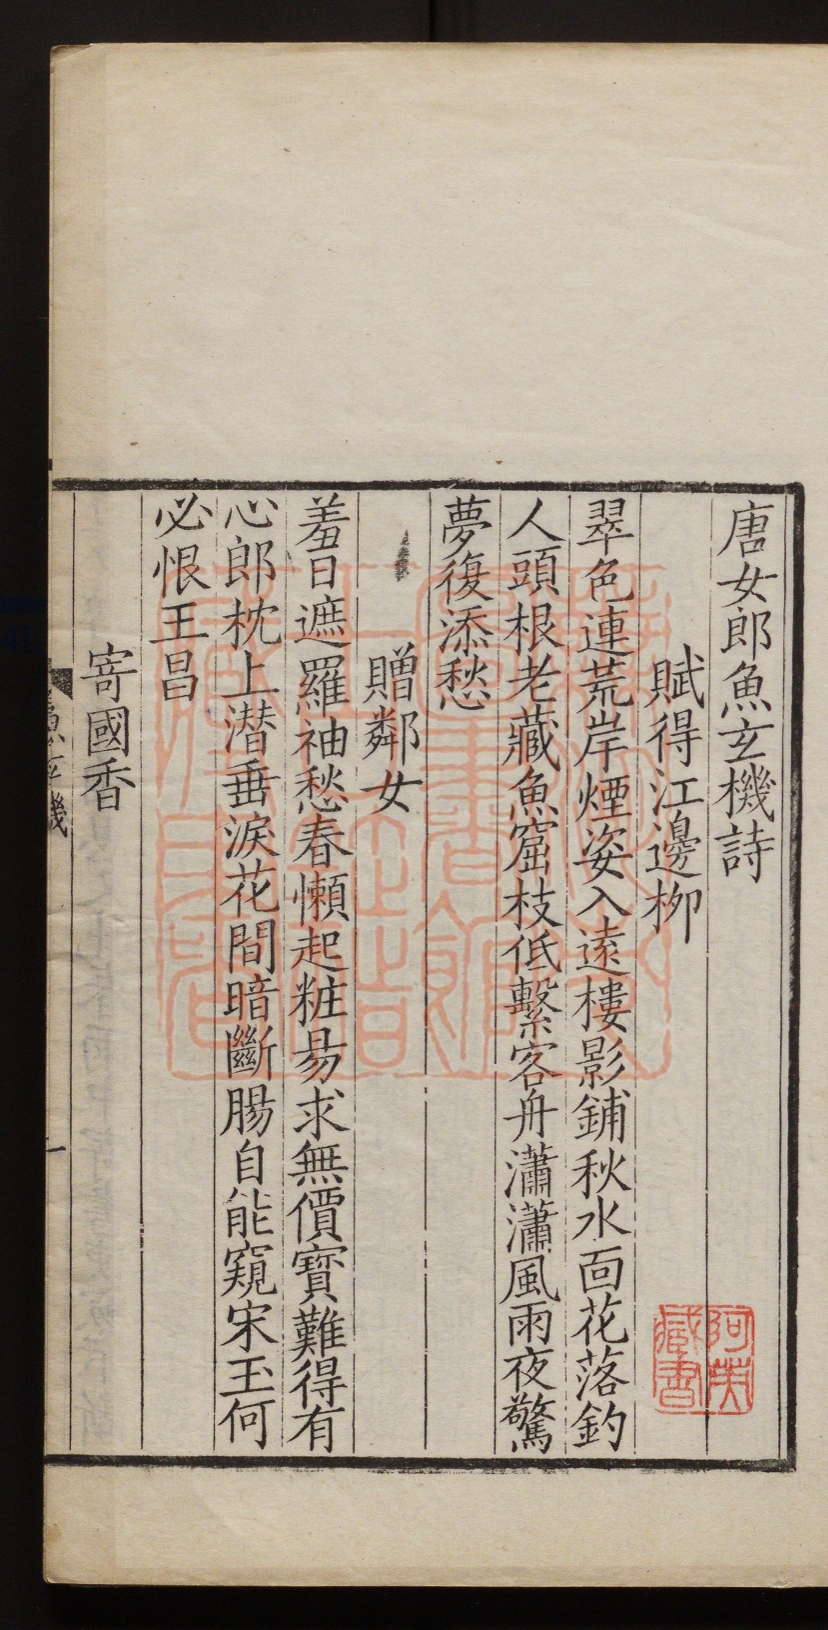 唐女郎魚玄機詩
賦得江邊柳
翠色連荒岸煙姿入遠樓影鋪秋水面花落釣
人頭根老藏魚窟枝低繫客舟瀟瀟風雨夜驚
夢復添愁
贈鄰女
羞日遮羅袖愁春懶起粧易求無價寳難得有
心郎枕上潜垂淚花間暗斷腸自能窺宋玉何
必恨王昌
寄國香
魚玄機
一
阿英
藏書